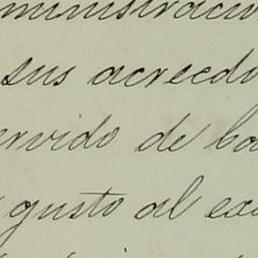 ministraci
sus acreedo
ervido de ba
gusto al ex